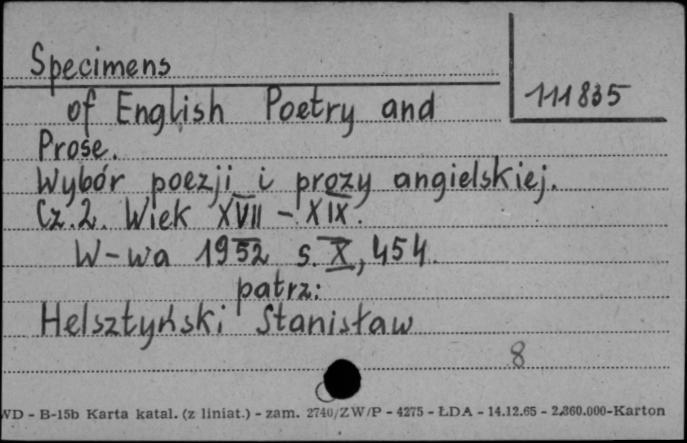 Specimens
111835
of English Poetry and
Prose.
Wybór poezji i prozy angielskiej.
Cz. 2. Wiek XVII - XIX.
W-wa 1952 s. X, 454.
patrz:
Helsztyński Stanisław
8
WD - B-15b Karta katal. (z liniat.) - zam. 2740/ZW/P - 4275 - ŁDA - 14.12.65 - 2.860.000-Karton